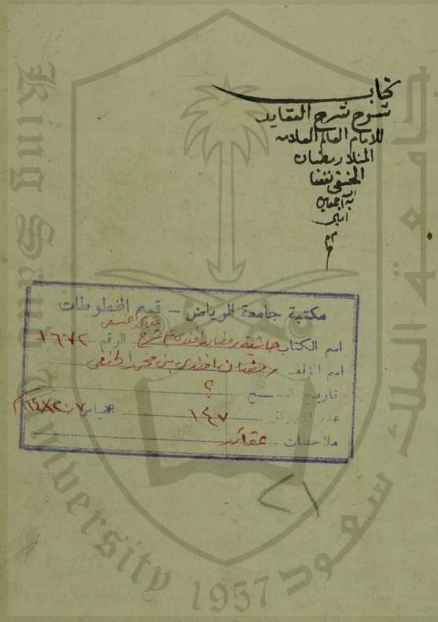 كتاب
شرح شرح العقايد
للامام العالم العلامه
المنلا رمضان
الحنفي نفعنا
به اجمعين
امين
م
مكتبة جامعة الرياض - قسم المخطوطات
اسم الكتاب حاشية رمضان افندي على شرح الرقم ١٦٧٢
اسم المؤلف رمضان افندي بن محمد الحنفي
تاريخ النسخ ؟
عدد الأوراق ١٤٧
ملاحظات عقائد
King Saud University
1957
جامعة الملك سعود